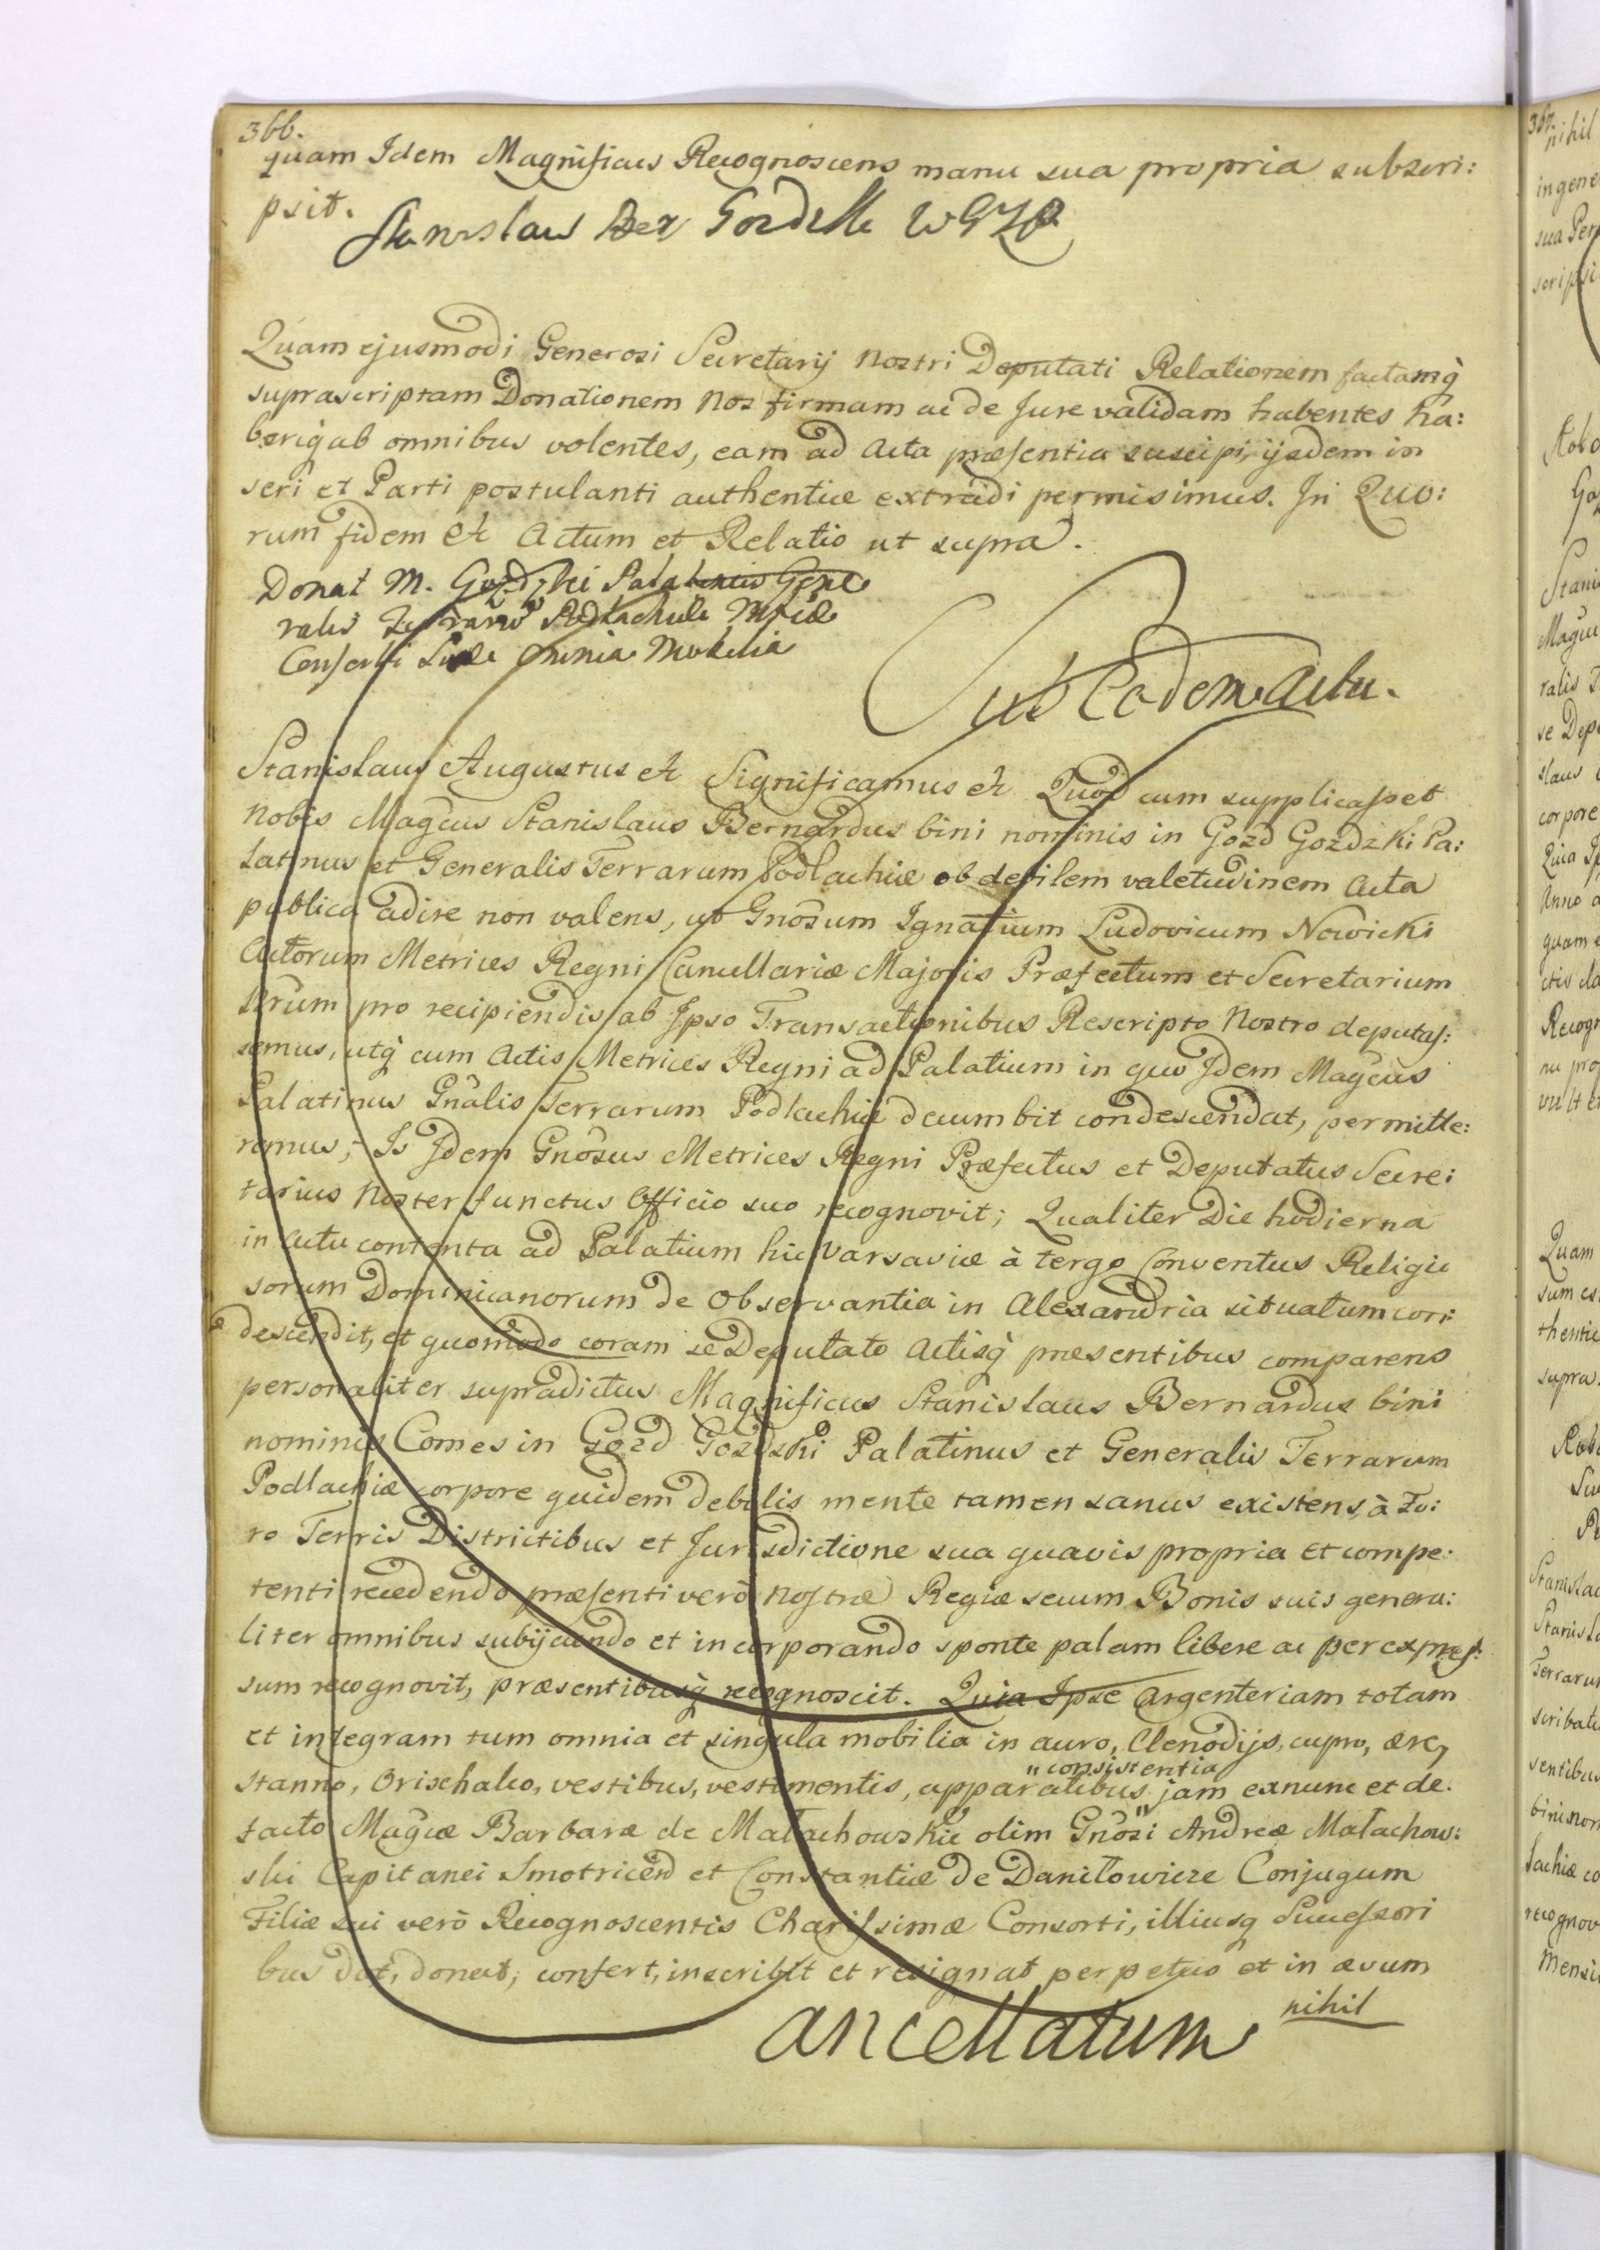 366.
quam Idem Magnificus Recognoscens manu sua propria subscri:
psit.
Stanislaw Ber Gozdzki WGZP
Quam ejusmodi Generosi Secretarij Nostri Deputati Relationem factamq̀
suprascriptam Donationem Nos firmam ac de Jure validam habentes ha:
beriq̀ ab omnibus volentes, eam ad Acta præsentia suscipi, ijsdem in
seri et Parti postulanti authentice extradi permisimus. In Quo:
rum fidem &c Actum et Relatio ut supra.
Donat M. Gozdzki Palatinus Gene
ralis Terrarum Podlachiæ Mficæ
Consorti Suæ Omnia Mobilia
Sub Eodem Actu.
Stanislaus Augustus &c Significamus &c Quod cum supplicasset
Nobis Magcus Stanislaus Bernardus bini nominis in Gozd Gozdzki Pa:
latinus et Generalis Terrarum Podlachiæ ob debilem valetudinem Acta
publica adire non valens, ut Gnosum Ignatium Ludovicum Nowicki
Actorum Metrices Regni Cancellariæ Majoris Præfectum et Secretarium
Nrum pro recipiendis ab Ipso Transactionibus Rescripto Nostro deputas:
semus, utq̀ cum Actis Metrices Regni ad Palatium in quo Idem Magcus
Palatinus Gnalis Terrarum Podlachiæ decumbit condescendat, permitte:
remus; Is Idem Gnosus Metrices Regni Præfectus et Deputatus Secre:
tarius Noster functus Officio suo recognovit; Qualiter Die hodierna
in Actu contenta ad Palatium hic Varsaviæ à tergo Conventus Religio
sorum Dominicanorum de Observantia in Alexandria situatum con:
descendit, et quomodo coram se Deputato Actisq̀ præsentibus comparens
personaliter supradictus Magnificus Stanislaus Bernardus bini
nominis Comes in Gozd Gozdzki Palatinus et Generalis Terrarum
Podlachiæ corpore quidem debilis mente tamen sanus existens, à Fo:
ro Terris Districtibus et Jurisdictione sua quavis propria et compe:
tenti recedendo præsenti verò Nostræ Regiæ secum Bonis suis genera:
liter omnibus subijciendo et incorporando sponte palam libere ac per expres:
sum recognovit, præsentibusq̀ recognoscit. Quia Ipse Argenteriam totam
et integram tum omnia et singula mobilia in auro, Clenodijs, cupro, ære,
"consistentia
stanno, Orischalco, vestibus, vestimentis, apparatibus" jam exnunc et de
facto Magcæ Barbaræ de Małachowskie olim Gnosi Andreæ Małachow:
ski Capitanei Smotricen̄ et Constantiæ de Daniłowicze Conjugum
Filiæ sui verò Recognoscentis Charissimæ Consorti, illiusq̀ Successori
bus dat, donat, confert, inscribit et resignat perpetuo et in ævum
nihil
Cancellatum